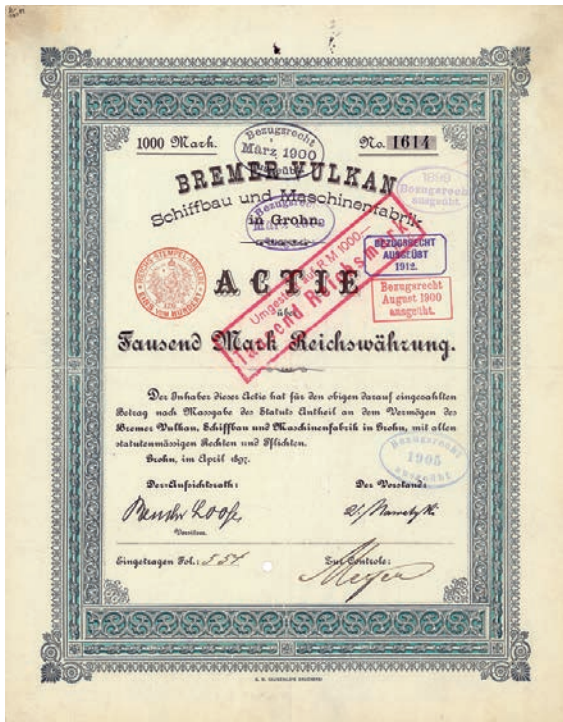 1000 Mark.
No. 1614
Bezugsrecht
März 1900
BREMER VULKAN
Schiffbau und Maschinenfabrik
in Grohn.
1899
Bezugsrecht
ausgeübt.
BEZUGSRECHT
AUSGEÜBT
1912.
Bezugsrecht
August 1900
ausgeübt.
Umgestellt auf R.M 1000.—
Tausend Reichsmark
ACTIE
über
Tausend Mark Reichswährung.
Der Inhaber dieser Actie hat für den obigen darauf eingezahlten
Betrag nach Massgabe des Statuts Antheil an dem Vermögen des
Bremer Vulkan, Schiffbau und Maschinenfabrik in Grohn, mit allen
statutenmässigen Rechten und Pflichten.
Grohn, im April 1897.
Bezugsrecht
1905
ausgeübt
Der Aufsichtsrath:
Der Vorstand:
Vorsitzer.
Eingetragen Fol.:
Zur Controle:
Meyer